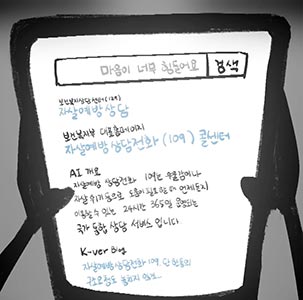 마음이 너무 힘들어요 검색
보건복지상담센터(129)
자살예방상담
보건복지부 대표홈페이지
자살예방상담전화(109) 콜센터
AI 개요
자살예방 상담전화 109는 우울감이나
자살 위기 등으로 도움이 필요한 분이 언제든지
이용할 수 있는 24시간 365일 운영되는
국가 통합 상담 서비스입니다.
K-ver Blog
자살예방상담전화 109 당신들의
구조요청도 놓치지 않고...